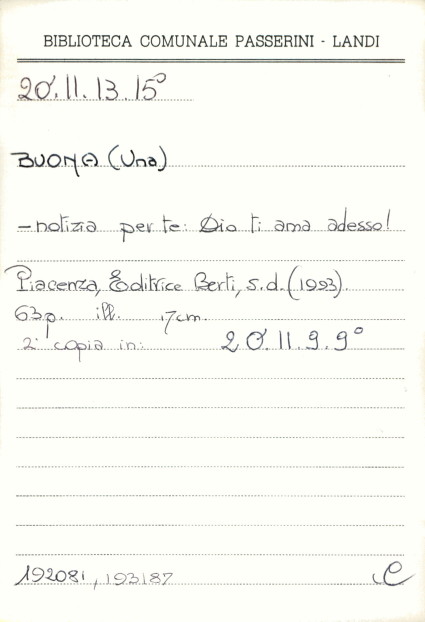 BIBLIOTECA COMUNALE PASSERINI - LANDI
20'.II.13.15°
BUONA (Una)
- notizia per te: Dio ti ama adesso!
Piacenza, Editrice Berti, s.d. (1993).
63p. ill. 17cm.
2ª copia in: 20'.II.9.9°
192081, 193187 C